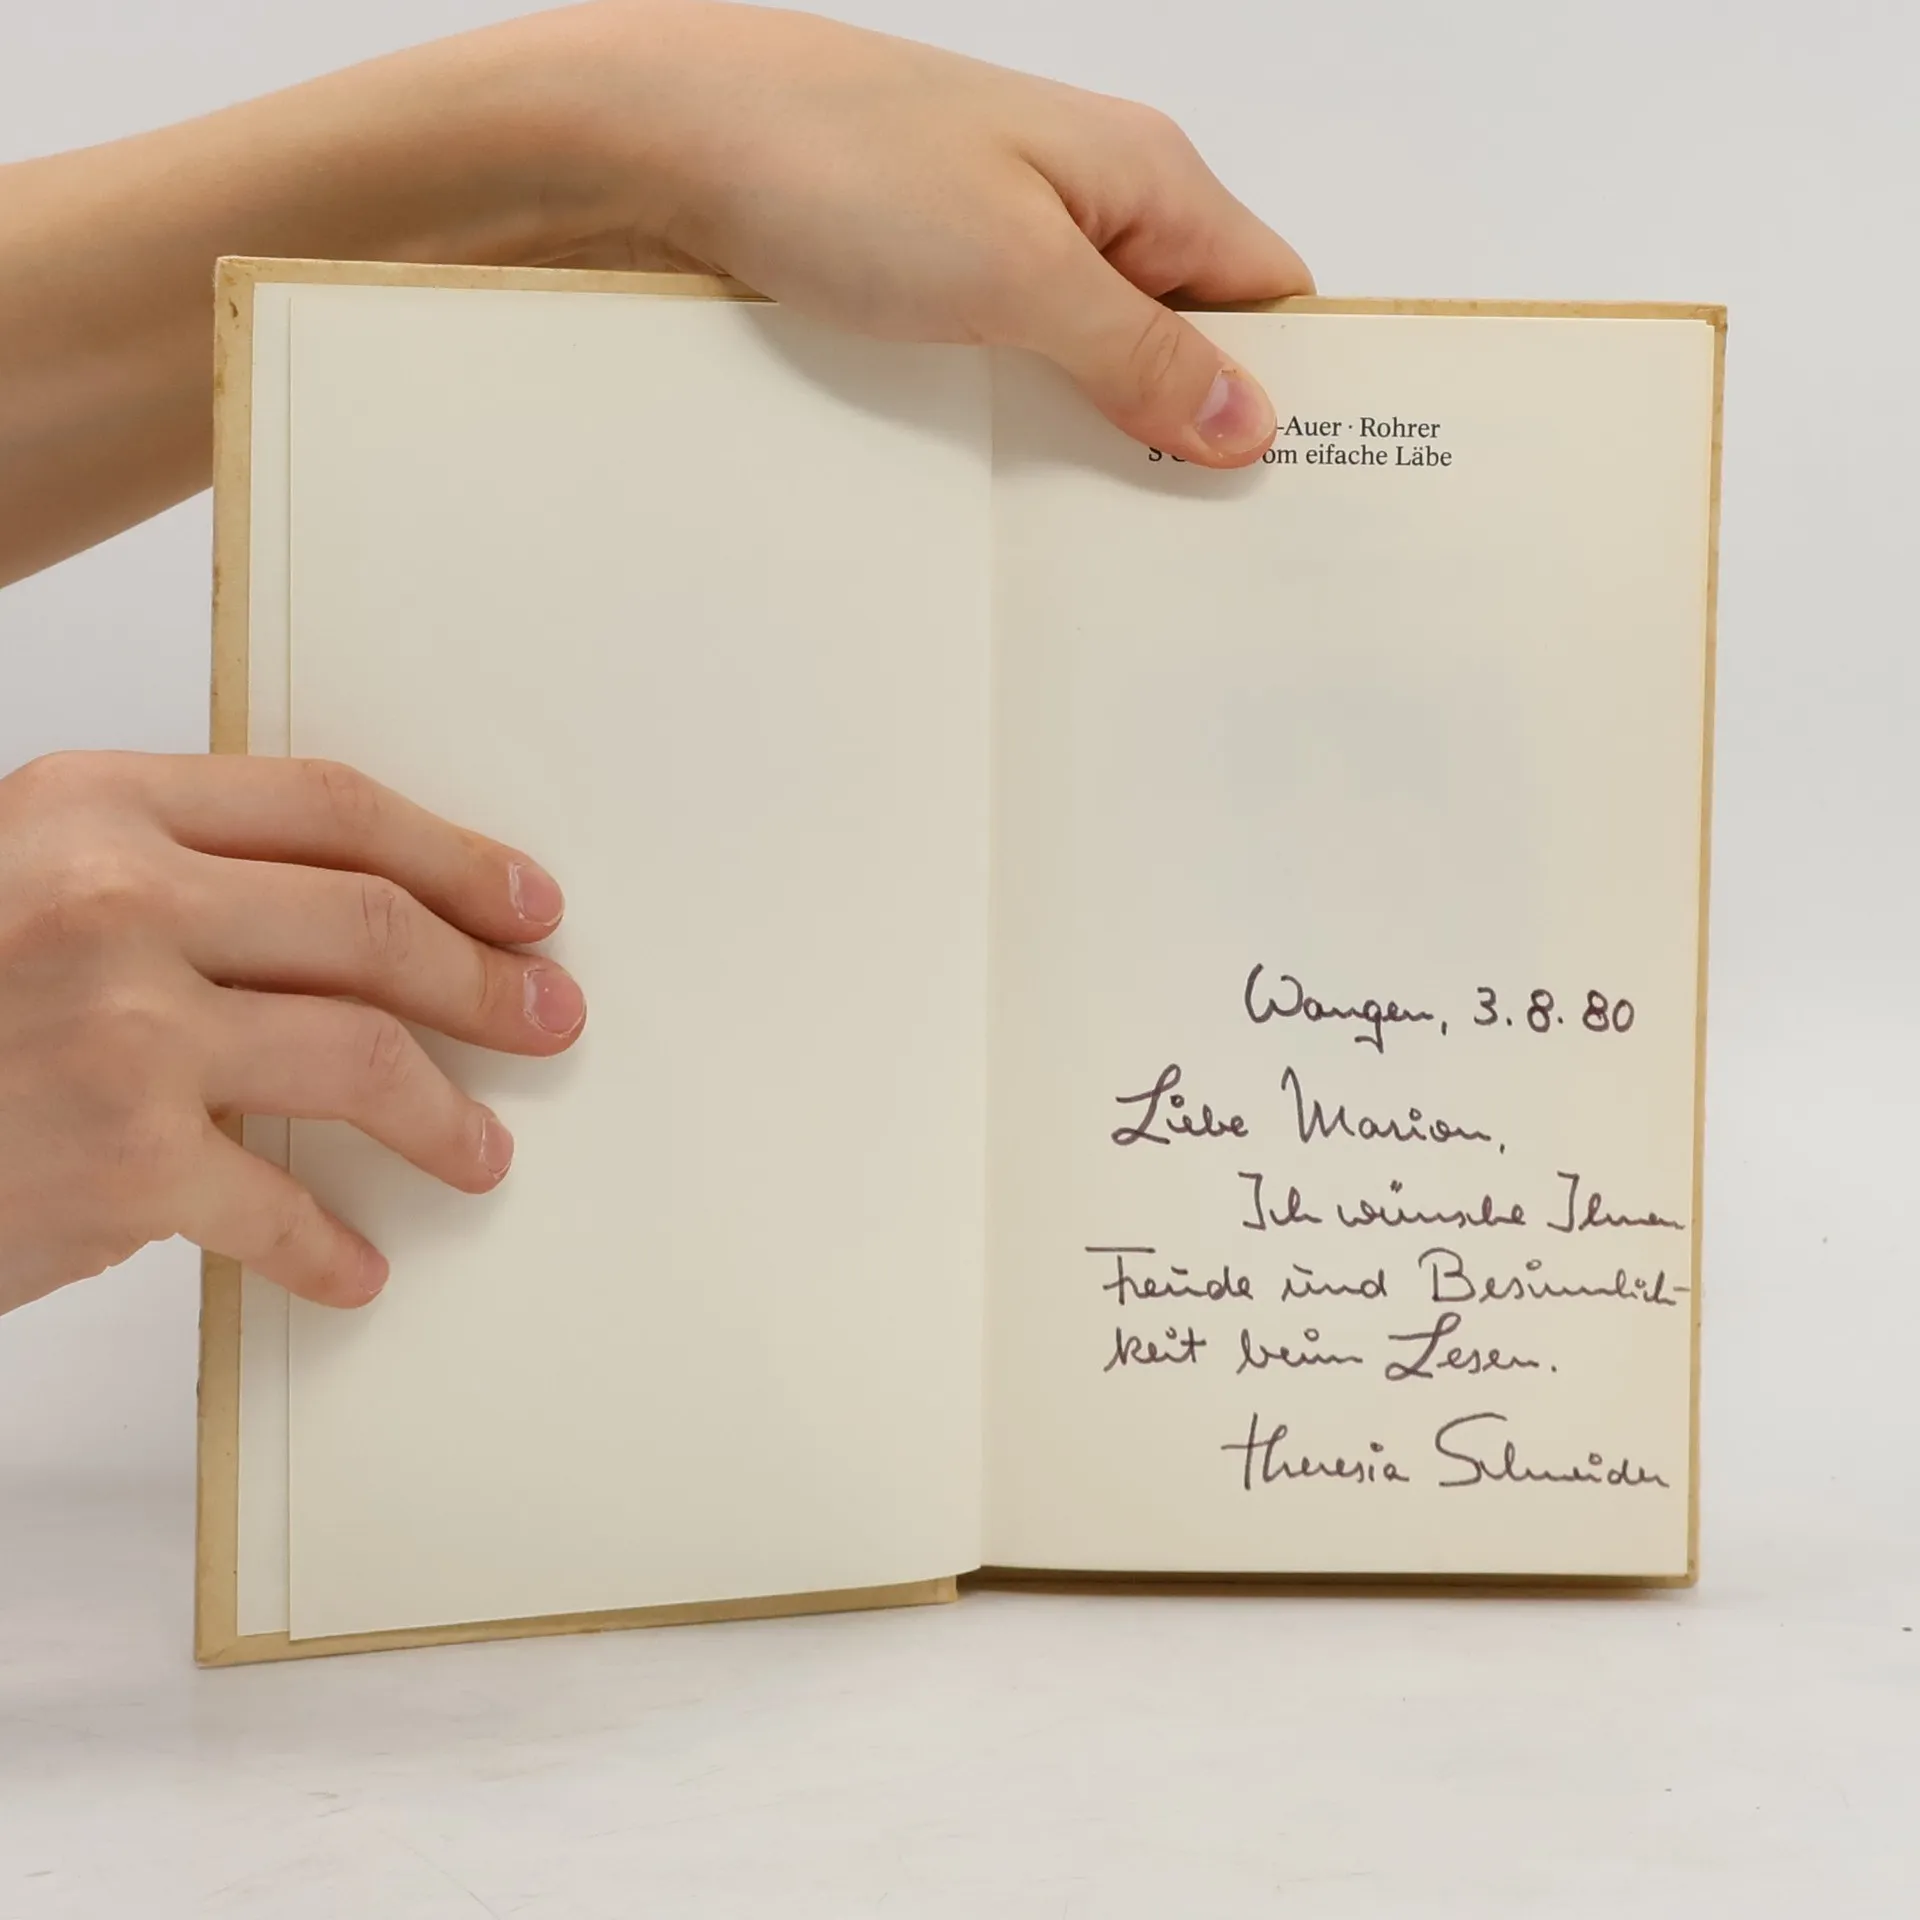 -Auer · Rohrer
om eifache Läbe
Wangen, 3.8.80
Liebe Marion,
Ich wünsche Ihnen
Freude und Besinnlich-
keit beim Lesen.
Theresia Schneider